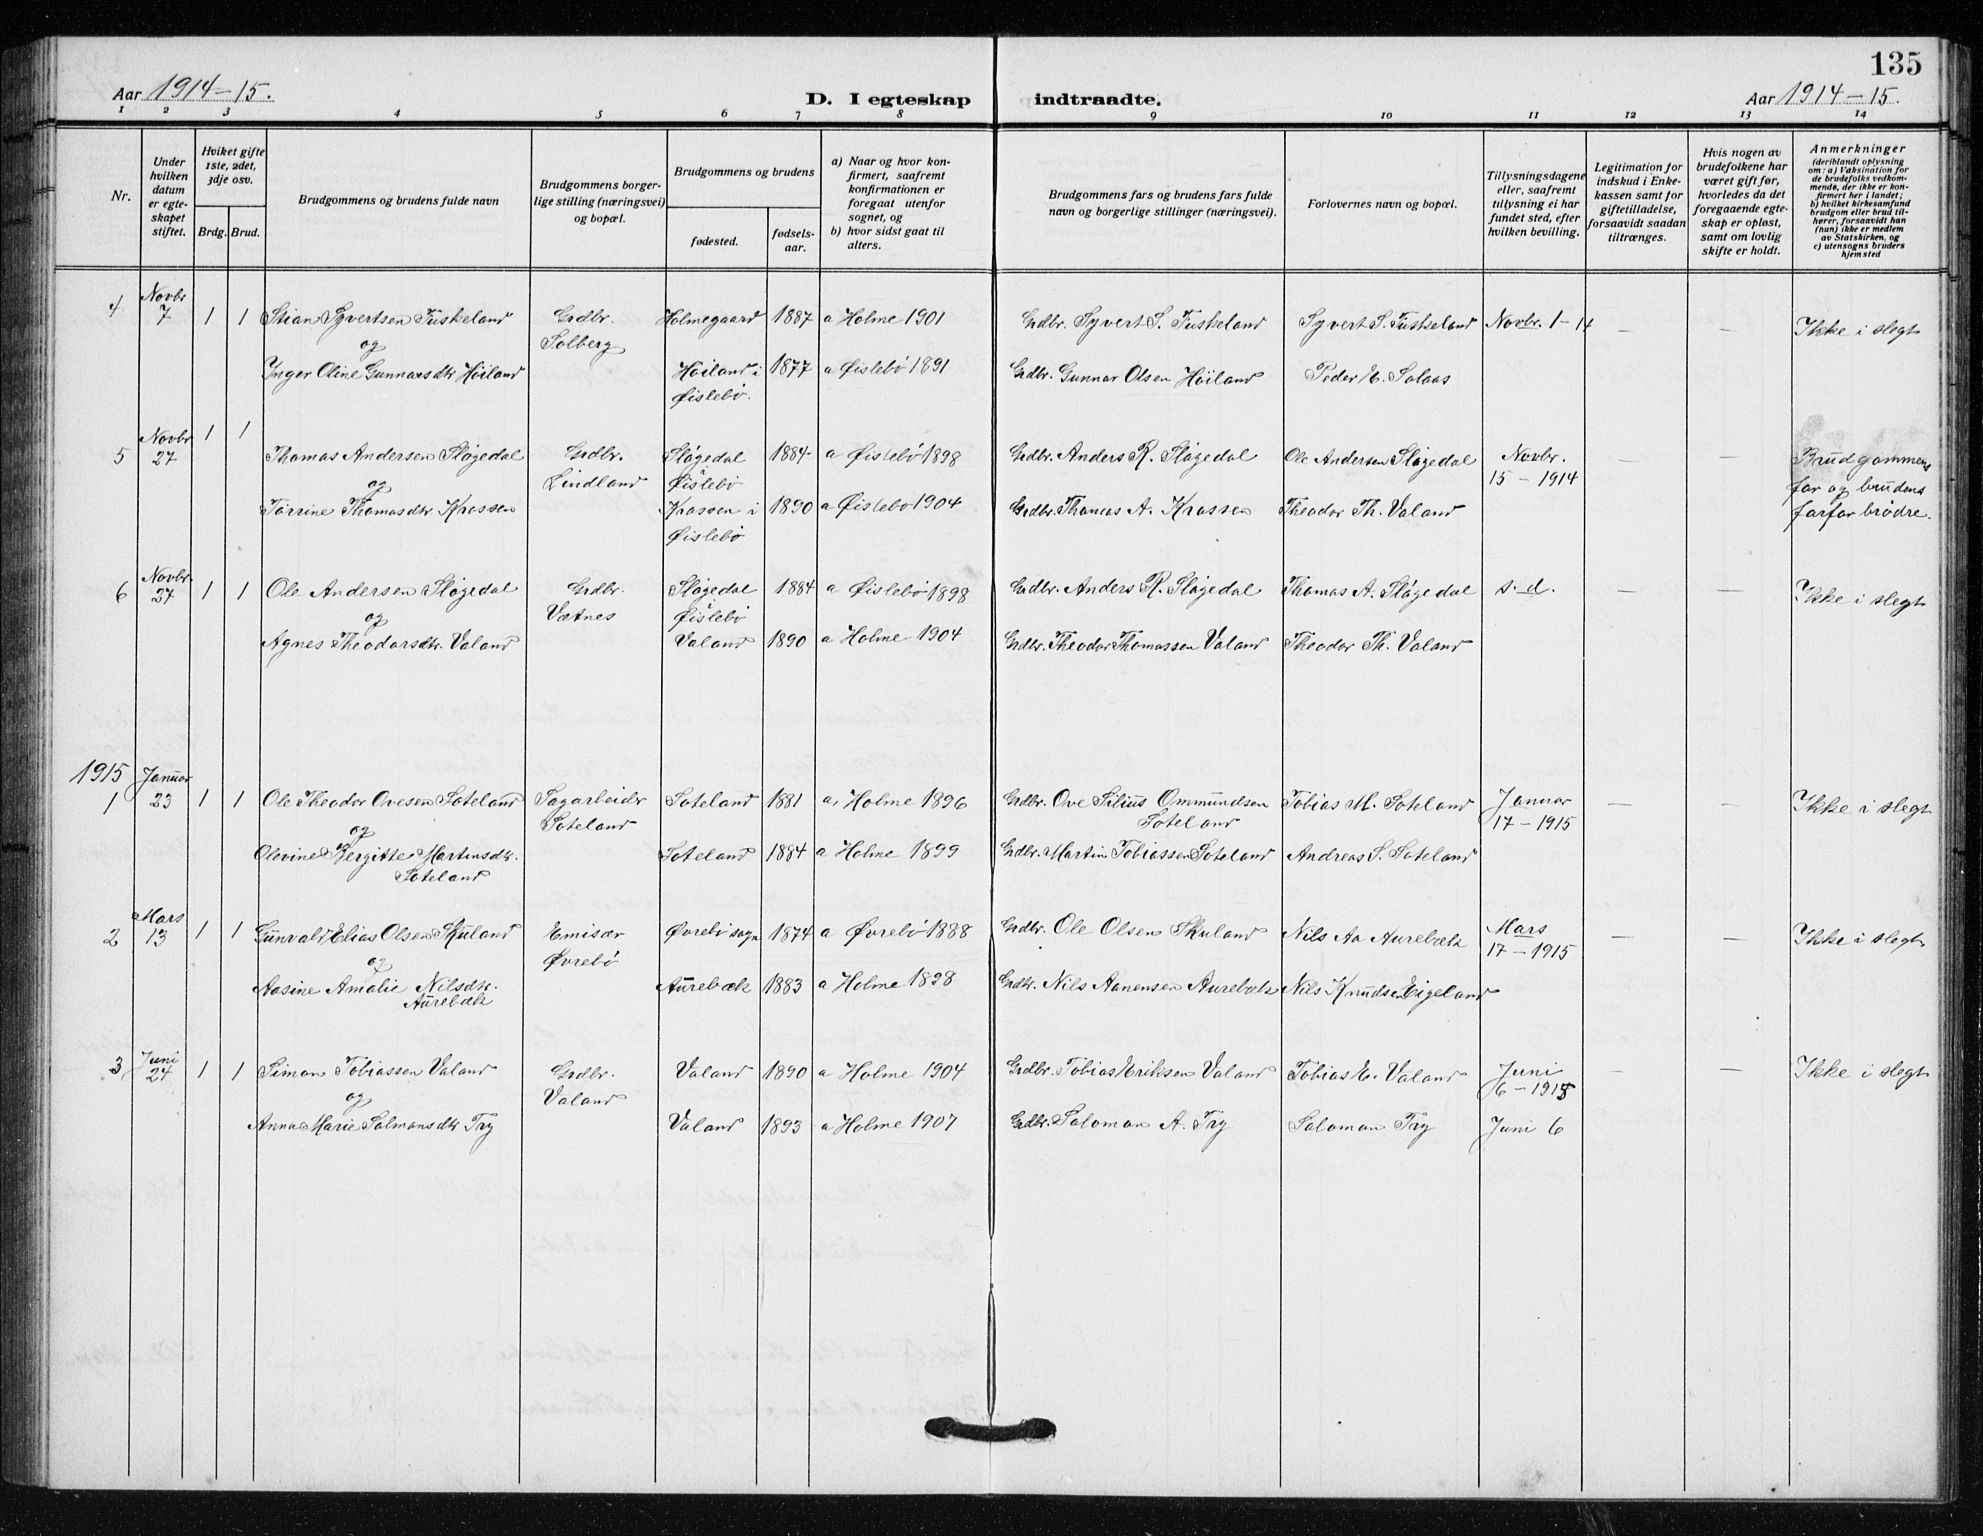 135
Aar 1914-15. D. I egteskap indtraadte. Aar 1914-15.
1 2 3 4 5 6 7 8 9 10 11 12 13 14
Nr.
Under hvilken datum er egteskapet stiftet.
Hviket gifte 1ste, 2det, 3dje osv.
Brdg. Brud.
Brudgommens og brudens fulde navn
Brudgommens borgerlige stilling (næringsvei) og bopæl.
Brudgommens og brudens
fødested. fødselsaar.
a) Naar og hvor konfirmert, saafremt konfirmationen er foregaat utenfor sognet, og
b) hvor sidst gaat til alters.
Brudgommens fars og brudens fars fulde navn og borgerlige stillinger (næringsvei).
Forlovernes navn og bopæl.
Tillysningsdagene eller, saafremt tillysning ei har fundet sted, efter hvilken bevilling.
Legitimation for indskud i Enkekassen samt for giftetilladelse, forsaavidt saadan tiltrænges.
Hvis nogen av brudefolkene har været gift før, hvorledes da det foregaaende egteskap er opløst, samt om lovlig skifte er holdt.
Anmerkninger (deriblandt oplysning om: a) Vaksination for de brudefolks vedkommende, der ikke er konfirmert her i landet; b) hvilket kirkesamfund brudgom eller brud tilhører, forsaavidt han (hun) ikke er medlem av Statskirken, og c) utensogns bruders hjemsted
4 Novbr 7 1 1 Stian Syvertsen Tuskeland Grdbr. Solberg Holmegaard 1887 a Holme 1901 Grdbr. Syvert S. Tuskeland Syvert S. Tuskeland Novbr. 1-14 — — Ikke i slegt
og
Inger Oline Gunnarsdtr Høiland Høiland i Øislebø. 1877 a Øislebø 1891 Grdbr. Gunnar Olsen Høiland Peder E. Solaas
5 Novbr 27 1 1 Thomas Andersen Sløgedal Grdbr. Lindland Sløgedal Øislebø 1884 a Øislebø 1898 Grdbr. Anders R. Sløgedal Ole Andersen Sløgedal Novbr. 15-1914 — — Brudgommens far og brudens farfar brødre.
og
Torrine Thomasdtr. Krossen Krossen i Øislebø 1890 a Øislebø 1904 Grdbr. Thomas A. Krossen Theodor Th. Valand
6 Novbr. 27 1 1 Ole Andersen Sløgedal Grdbr. Vætnes Sløgedal Øislebø 1884 a Øislebø 1898 Grdbr. Anders R. Sløgedal Thomas A. Sløgedal s. d. — — Ikke i slegt
og
Agnes Theodorsdtr. Valand Valand 1890 a Holme 1904 Grdbr. Theodor Thomassen Valand Theodor Th. Valand
1915
1 Januar 23 1 1 Ole Theodor Ovesen Soteland Sagarbeidr Soteland Soteland 1881 a, Holme 1896 Grdbr. Ove Silius Ommundsen Soteland Tobias M. Soteland Januar 17-1915 — — Ikke i slegt
og
Olovine Bergitte Martinsdtr. Soteland Soteland 1884 a Holme 1899 Grdbr. Martin Tobiassen Soteland Andreas S. Soteland
2 Mars 13 1 1 Gunvald Elias Olsen Skuland Emisær Øvrebø Øvrebø sogn 1874 a Øvrebø 1888 Grdbr. Ole Olsen Skuland Nils Aa Aurebæk Mars 17-1915 — — Ikke i slegt
og
Aasine Amalie Nilsdtr. Aurebæk Aurebæk 1883 a Holme 1898 Grdbr. Nils Aanensen Aurebæk Nils Knudsen Eigeland
3 Juni 24 1 1 Simon Tobiassen Valand Grdbr. Valand Valand 1890 a Holme 1904 Grdbr. Tobias Eriksen Valand Tobias E. Valand Juni 6-1915 — — Ikke i slegt
og
Anna Marie Salmonsdtr Try Valand 1893 a Holme 1907 Grdbr. Salomon A. Try Salomon Try Juni 6